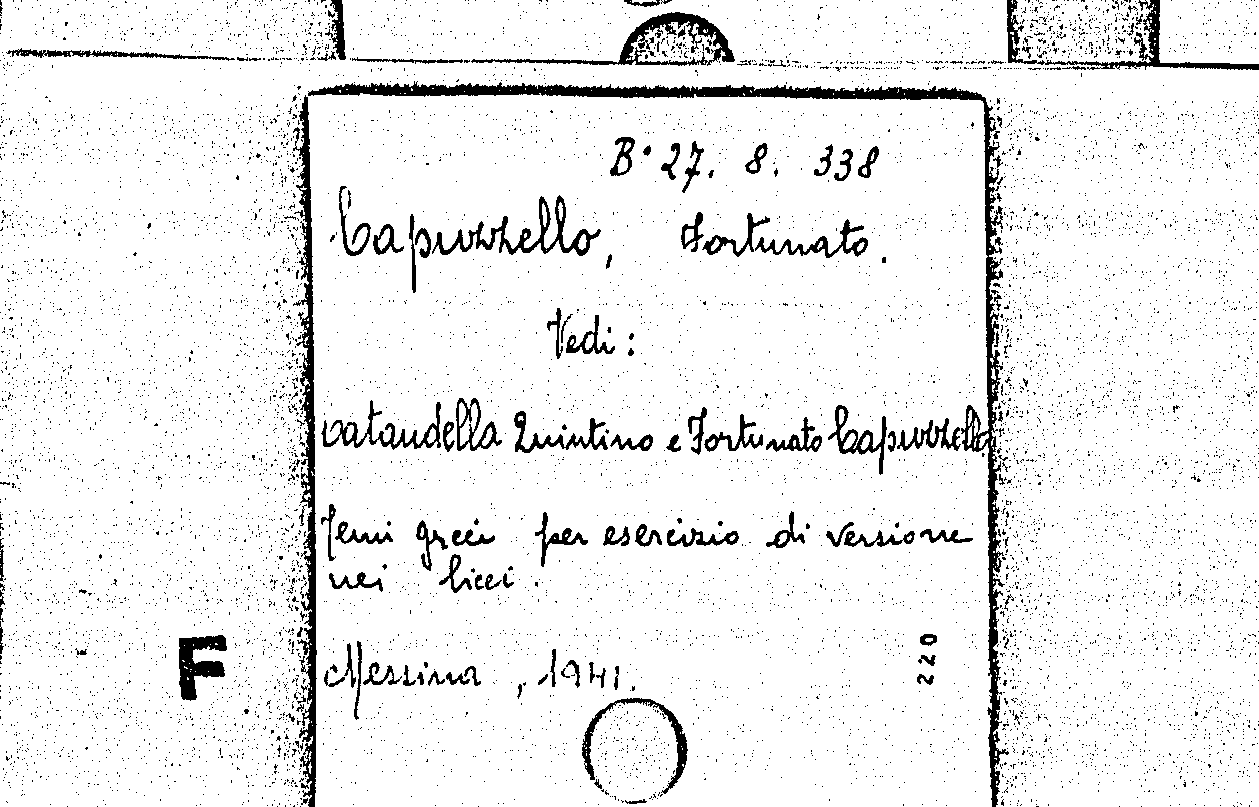 B. 27. 8. 338
Capuzzello, Fortunato.
Vedi:
Cataudella Quintino e Fortunato Capuzzello
Temi greci per esercizio di versione
nei licei.
F
Messina, 1941.
220